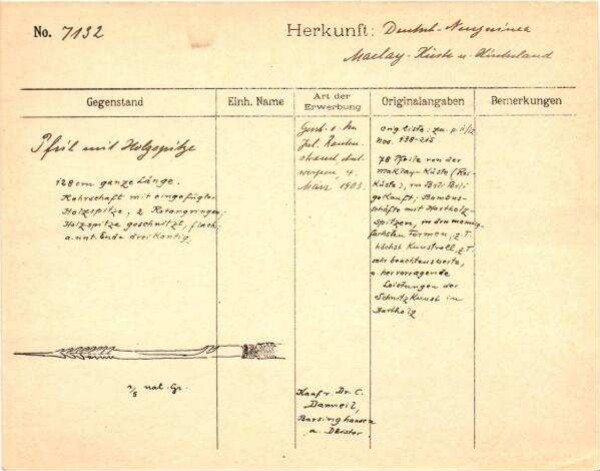 No. 7132
Herkunft: Deutsch-Neuguinea
Maclay-Küste u. Hinterland
Gegenstand
Einh. Name
Art der Erwerbung
Originalangaben
Bemerkungen
Pfeil mit Holzspitze
128 cm ganze Länge.
Rohrschaft mit eingefügter
Holzspitze, 2 Rotangringen;
Holzspitze geschnitzt, flach,
a. unt. Ende dreikantig.
nat. Gr.
Gesch. v. Hn
Jul.
4.
März 1903.
Kauf v. Dr. C.
Barsinghausen
a Deister.
Orig. Liste:
Nos. 138-215
78 Pfeile von der
Maklay-Küste (Rai-
Küste), in Bili Bili
gekauft; Bambus-
schäfte mit Hartholz-
spitzen, in den mannig-
fachsten Formen, z. T.
höchst kunstvoll, z. T.
sehr beachtenswerte,
hervorragende
Leistungen der
Schnitzkunst im
Hartholz